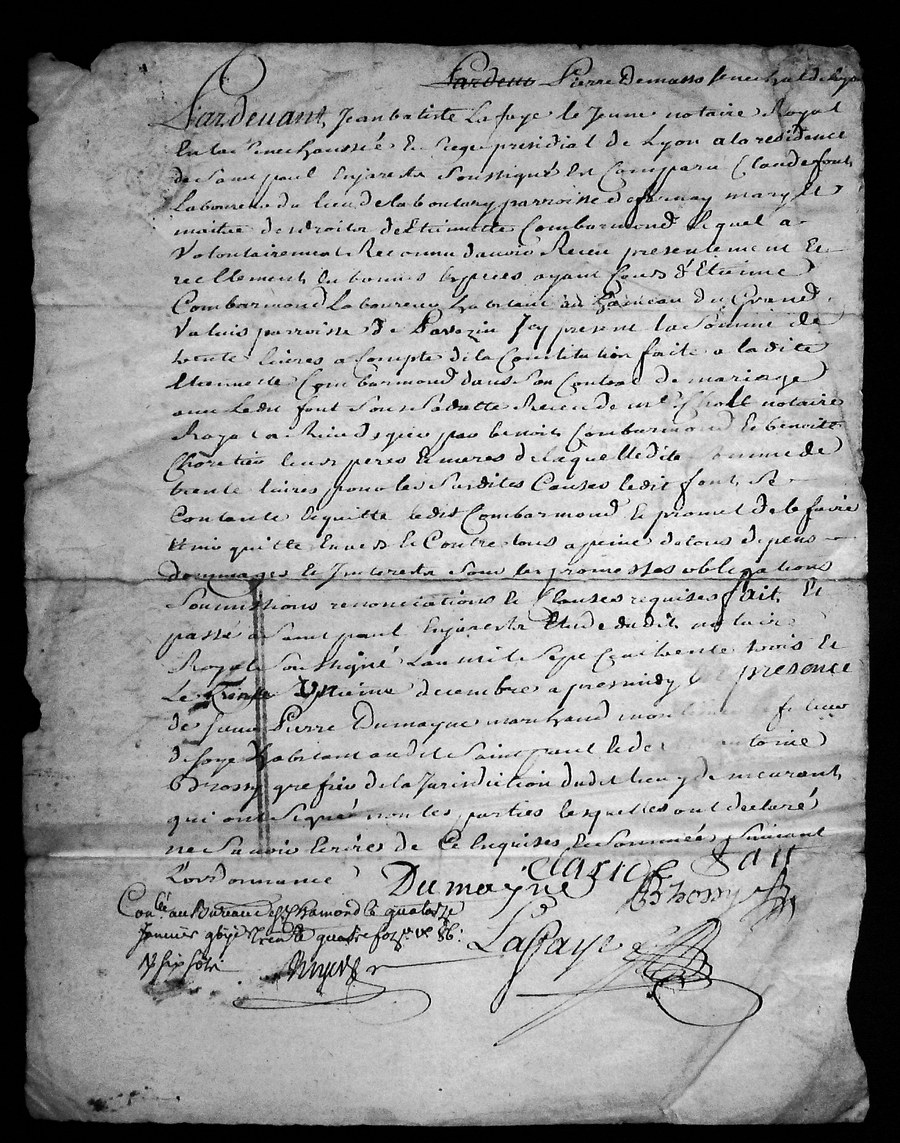 Pardeuant Pierre Demasso senechal de Lyon
Pardeuant Jean batiste Lafaye le Jeune notaire Royal
En la Senechaussée Et siege presidial de Lyon a la residence
de Saint paul Enjarestz Soussigné Est Comparu Claude font
Laboureur du lieu de la bontany parroisse de farnay mary Et
maitre des droitz dEtiennette Combarmond Lequel a
Volontairement Reconnu dauoir Receu presentement Et
reellement En bonnes Especes ayant Cours dEtienne
Combarmond Laboureur habitant au hameau du Grand
Valuis parroisse de Pavezin Icy present la Somme de
trente liures a Compte de la Constitution faite a ladite
Etiennette Combarmond dans Son Contrat de mariage
auec Ledit font Sous Sa datte Receu de me Choll notaire
Royal a Riuedegier par benoit Combarmond Et benoitte
Choretien leurs peres Et meres de laquelle dite Somme de
trente liures pour les Susdites Causes ledit font Se
Contante Et quitte ledit Combarmond Et promet de le faire
tenir quitte Enuers Et Contre tous a peine de tous depens
dommages Et Interestz Sous les promesses obligations
Soumissions renonciations Et Clauses requises fait Et
passé a Saint paul Enjarestz Etude dudit notaire
Royal Soussigné Lan mil Sept Cent trente trois Et
Le trente Unieme decembre apres midy presence
de Sieur Pierre Dumayne marchand fileur
de soye habitant audit Saint paul antoine
Brossy greffier de la Jurisdiction dudit lieu y demeurant
qui ont Signé non les parties lesquelles ont declaré
ne Sauoir Ecrire de Ce Enquises Et Sommées Suiuant
Lordonnance Dumayne Claude Font
Brossy
Conlé au Bureau de St Chamond le quatorze
Januier trente quatre
Lafaye